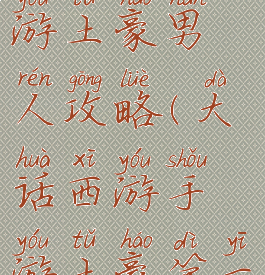 yóu tǔ háo nán
游土豪男
rén gōng lüè dà
人攻略(大
huà xī yóu shǒu
话西游手
yóu tǔ háo dì yī
游土豪第一